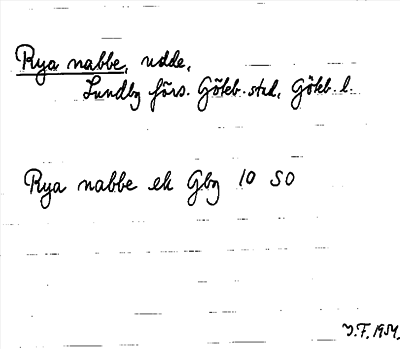 Rya nabbe, udde,
Lundby förs. Göteb. stad, Göteb. l.
Rya nabbe ek Gbg 10 SO
J.F. 1954.